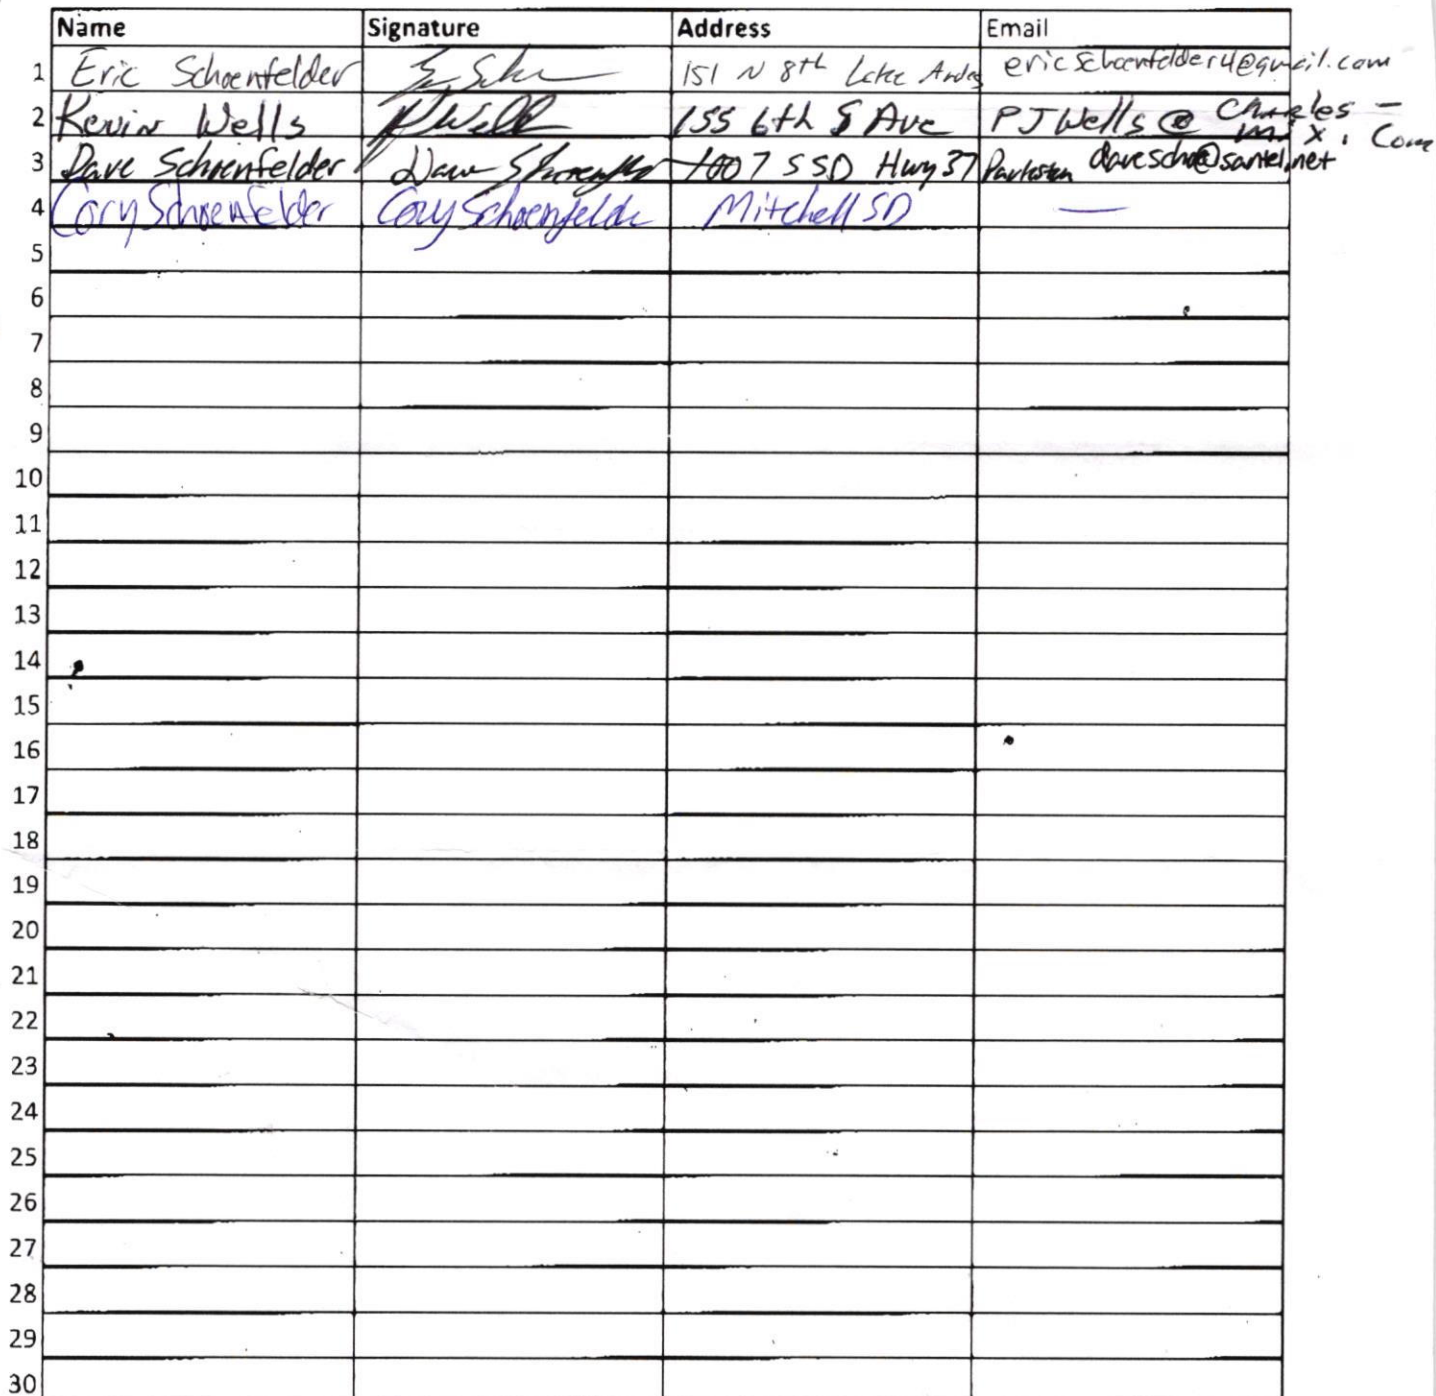 Name Signature Address Email
1 Eric Schoenfelder 151 N 8th Lake Andes ericschoenfelder4@gmail.com
2 Kevin Wells K Wells 155 6th S Ave PJWells@Charles-mix.com
3 Dave Schoenfelder Dave Schoenfelder 1007 S SD Hwy 37 Parkston davescho@santel.net
4 Cory Schoenfelder Cory Schoenfelder Mitchell SD —
5
6
7
8
9
10
11
12
13
14
15
16
17
18
19
20
21
22
23
24
25
26
27
28
29
30